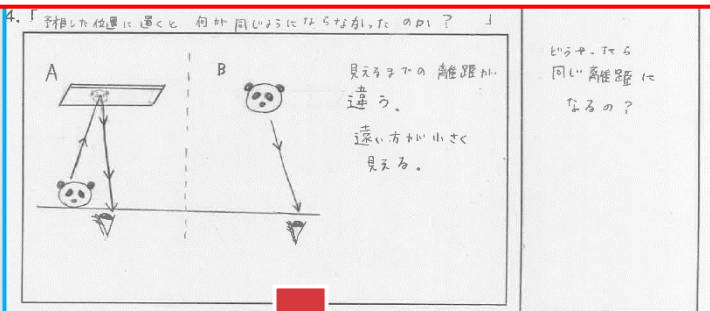 4.「予想した位置に置くと 何が 同じようにならなかった のか？ 」
A
B
見えるまでの 離距が
違う。
遠い方が小さく
見える。
どうやったら
同じ離距に
なるの？